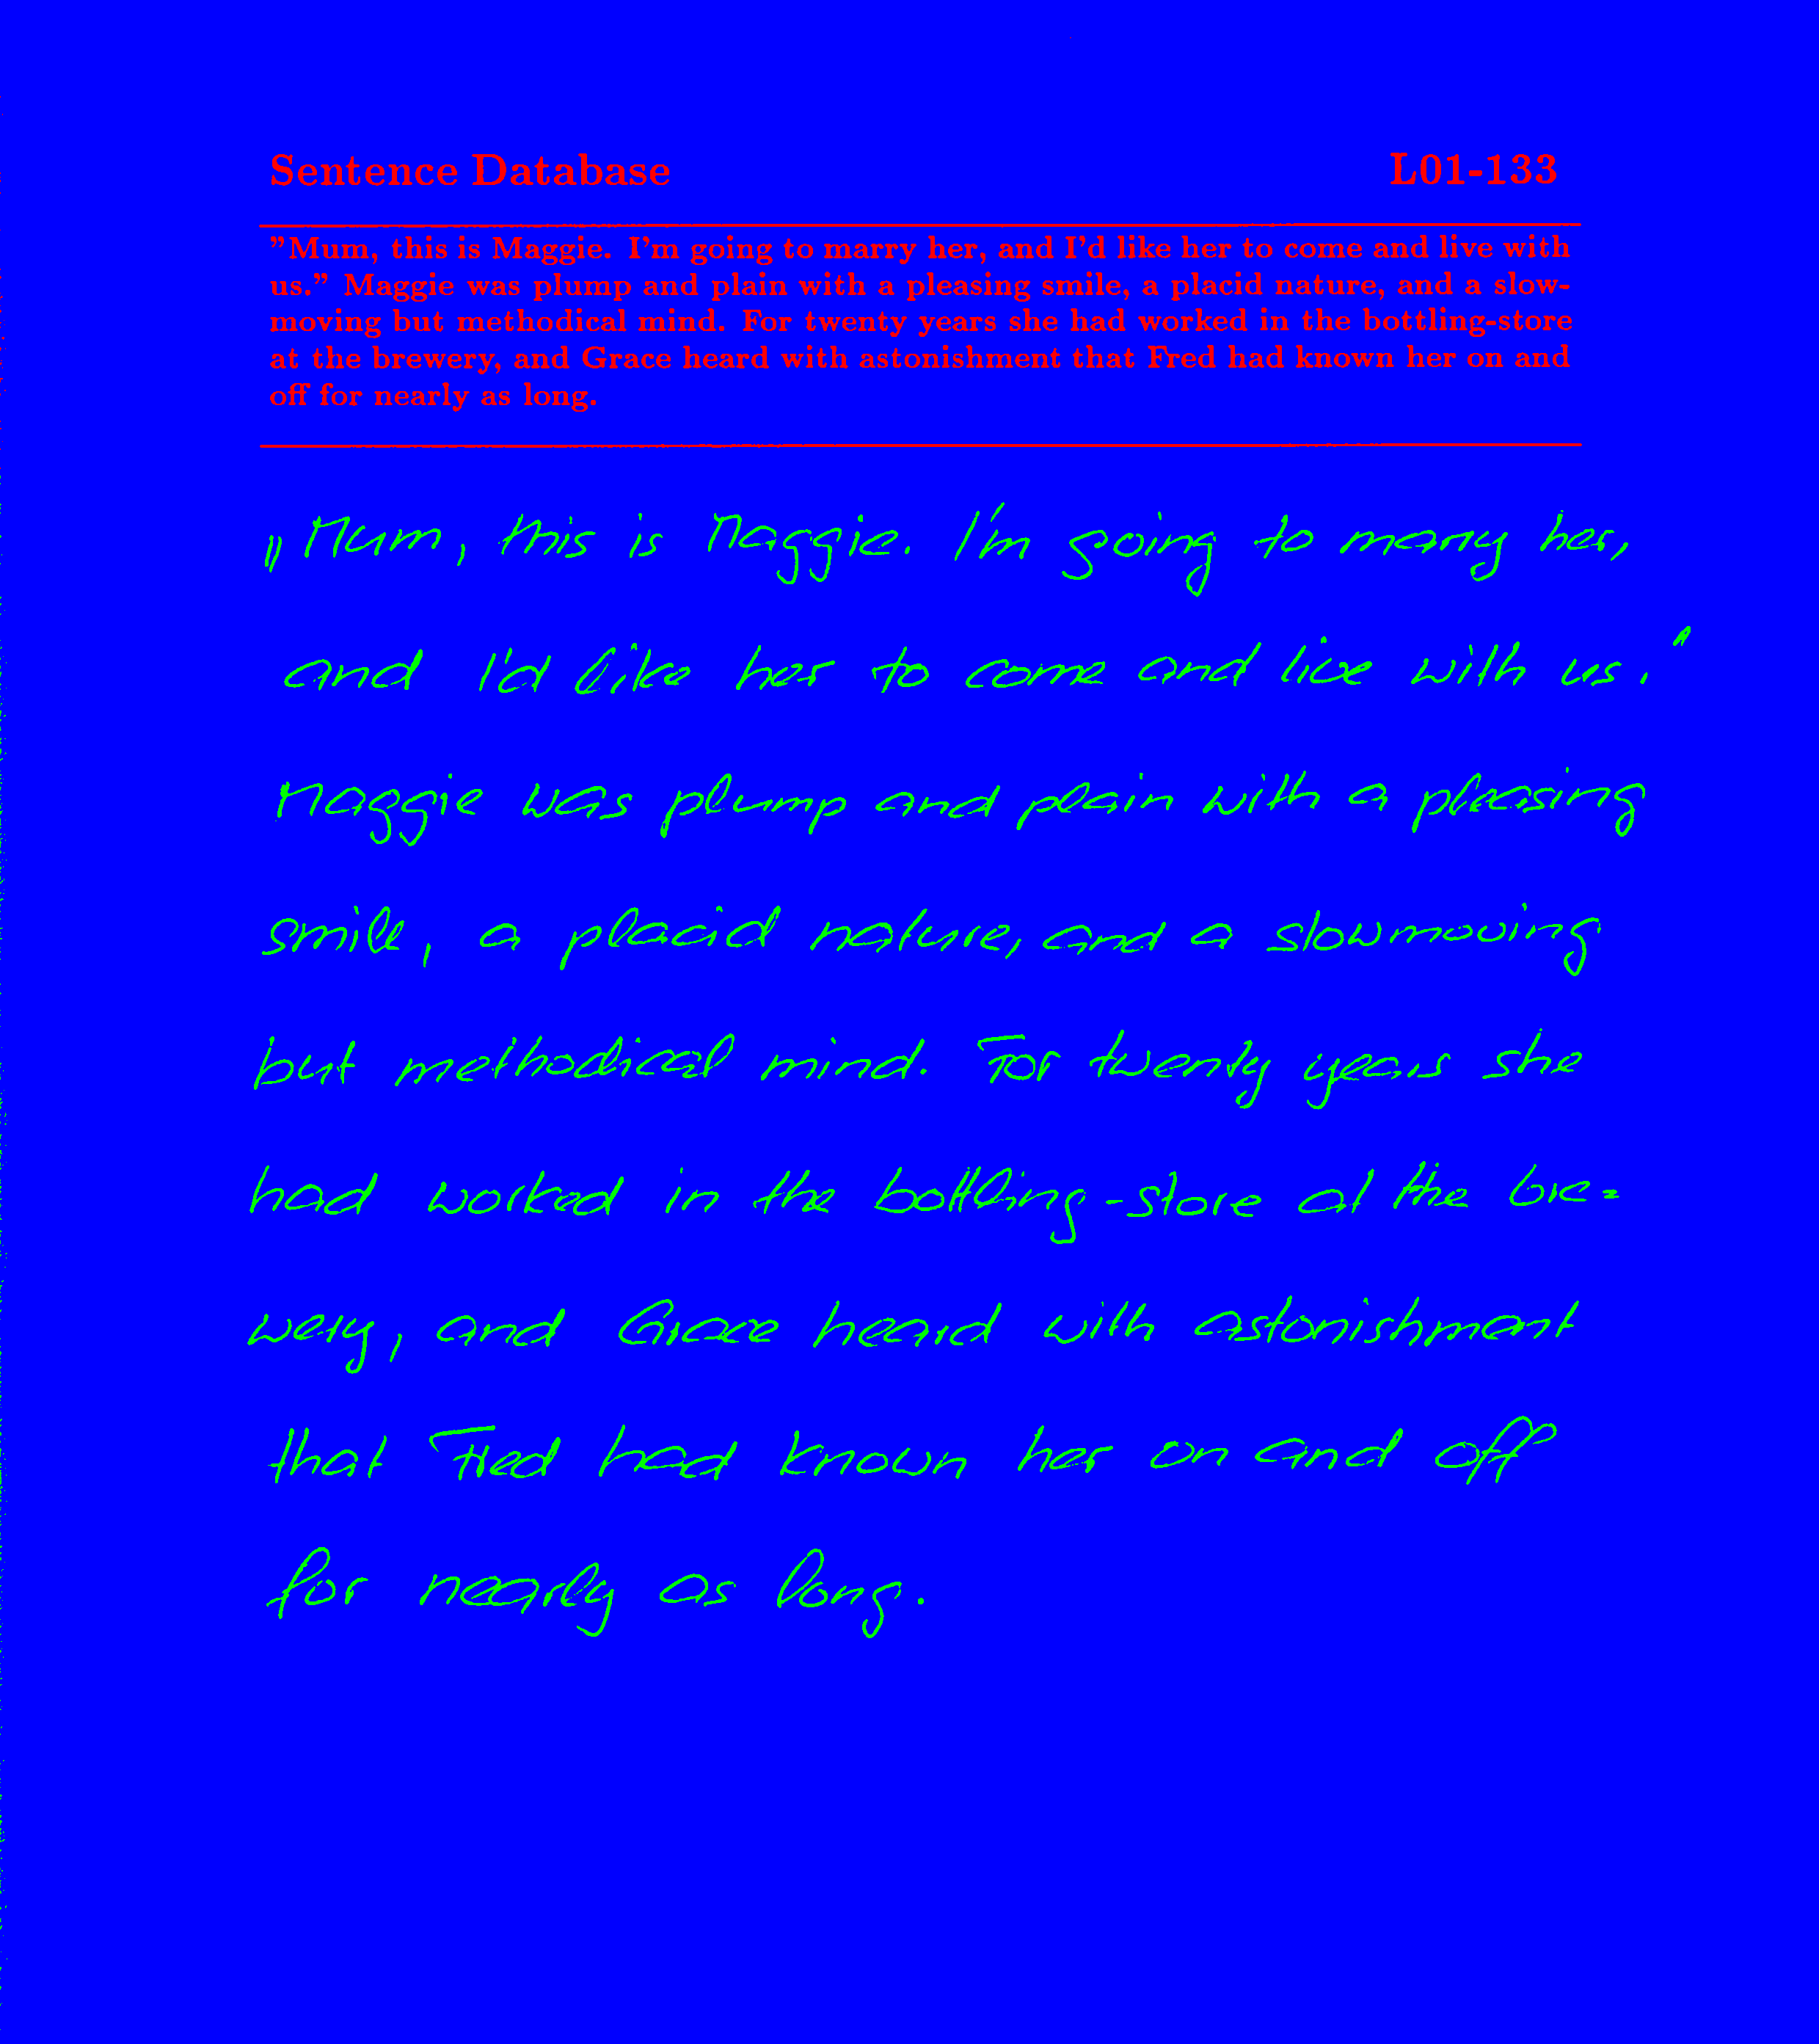 Sentence Database L01-133
"Mum, this is Maggie. I'm going to marry her, and I'd like her to come and live with
us." Maggie was plump and plain with a pleasing smile, a placid nature, and a slow-
moving but methodical mind. For twenty years she had worked in the bottling-store
at the brewery, and Grace heard with astonishment that Fred had known her on and
off for nearly as long.
„Mum, this is Maggie. I'm going to marry her,
and I'd like her to come and live with us."
Maggie was plump and plain with a pleasing
smile, a placid nature, and a slowmoving
but methodical mind. For twenty years she
had worked in the bottling-store at the bre=
wery, and Grace heard with astonishment
that Fred had known her on and off
for nearly as long.